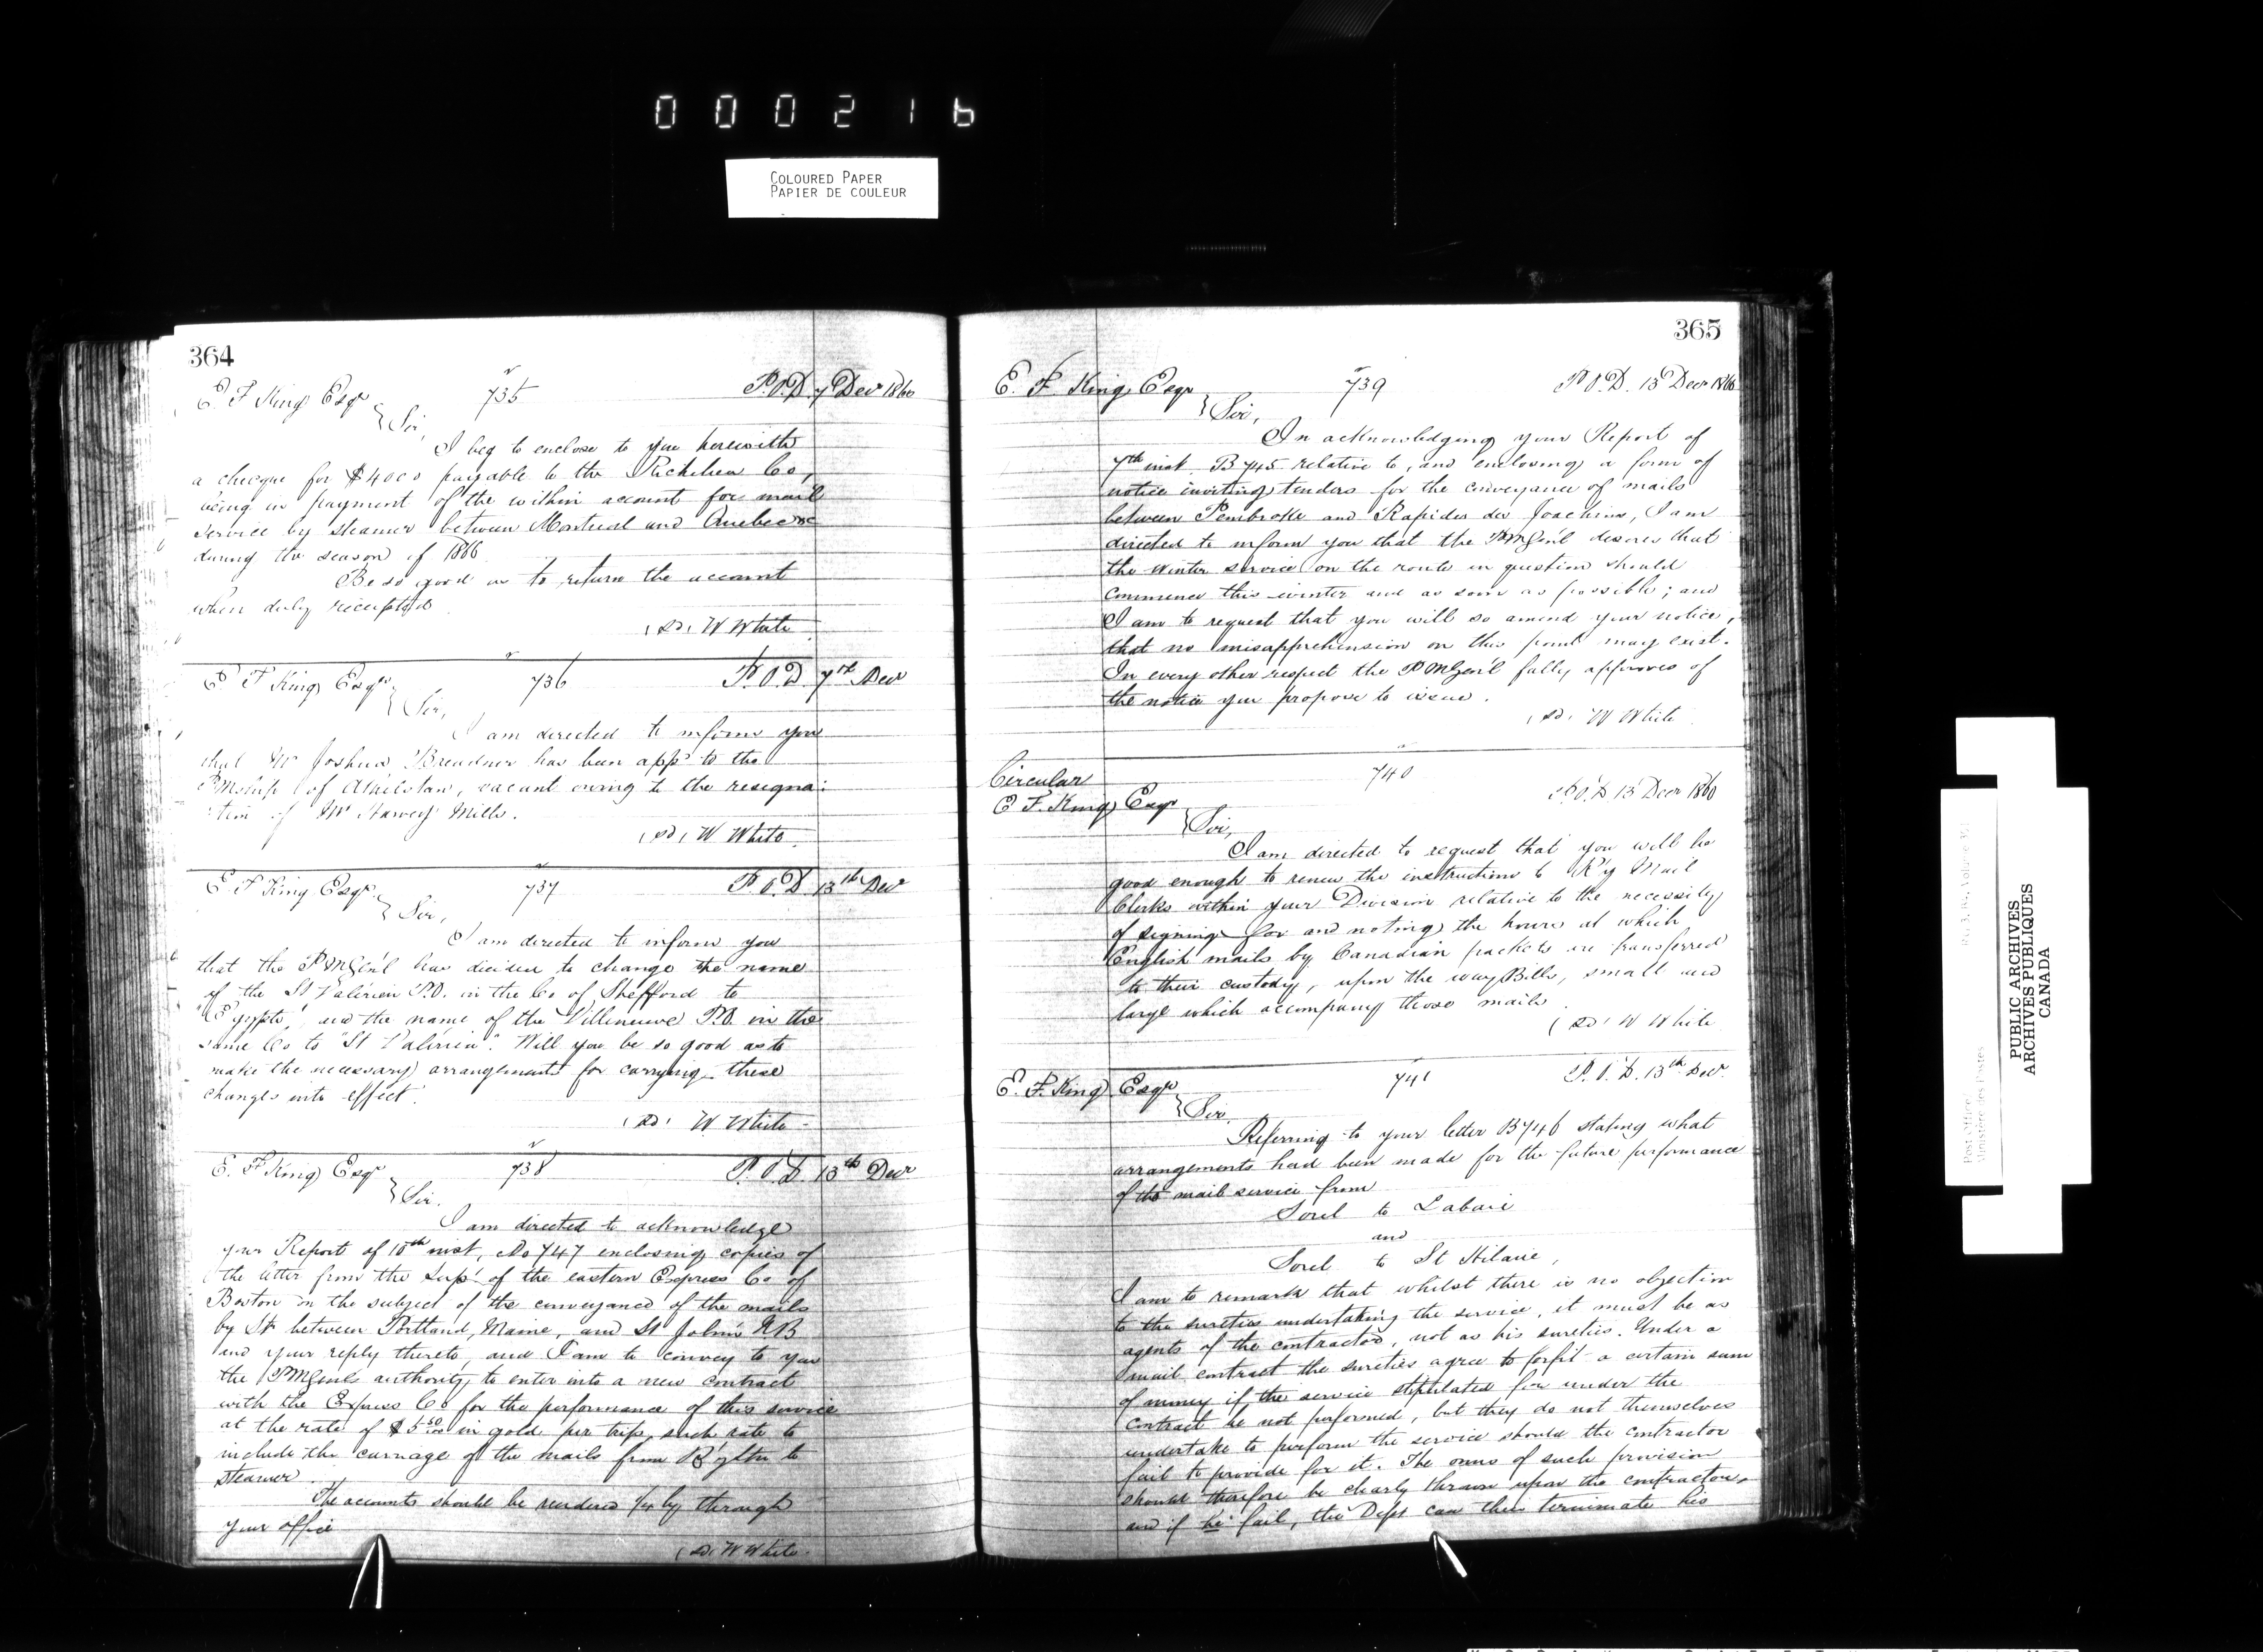 000216
COLOURED PAPER
PAPIER DE COULEUR
364
E F King Esqr 735 P.O.D. 7 Decr 1866
Sir,
I beg to enclose to you herewith
a checque for $4000 payable to the Richelieu Co,
being in payment of the within account for mail
service by steamer between Montreal and Quebec
during the season of 1866
Be so good as to return the account
when duly receipted
(sd) W White
E F King Esqr 736 P.O.D. 7th Decr
Sir,
I am directed to inform you
that Mr Joshua Breadner has been appd to the
PMship of Athelstan, vacant owing to the resigna:
tion of Mr Harvey Mills.
(sd) W White
E F King Esqr 737 P.O.D 13th Decr
Sir,
I am directed to inform you
that the PMGen'l has decided to change the name
of the St Valérien P.O. in the Co of Shefford to
"Egypte", and the name of the Villeneuve P.O. in the
same Co to "St Valérien". Will you be so good as to
make the necessary arrangements for carrying these
changes into effect.
(sd) W White
E. F King Esqr 738 P.O.D. 13th Decr
Sir.
I am directed to acknowledge
your Report of 10th inst, No 747 enclosing copies of
the letter from the Supt of the eastern Express Co of
Boston on the subject of the conveyance of the mails
by Str between Portland, Maine, and St John's NB
and your reply thereto, and I am to convey to you
the PMGenl's authority to enter into a new contract
with the Express Co for the performance of this service
at the rate of $5 50/100 in gold per trip, such rate to
include the carriage of the mails from to
steamer.
The accounts should be rendered 1/4 ly through
your office
(sd) W White
365
E. F. King Esqr 739 P.O.D. 13 Decr 1866
Sir,
In acknowledging your Report of
7th inst. B745 relative to, and enclosing a form of
notice inviting tenders for the conveyance of mails
between Pembroke and Rapides des Joachims, I am
directed to inform you that the PMGen'l desires that
the winter service on the route in question should
commence this winter and as soon as possible; and
I am to request that you will so amend your notice,
that no misapprehension on this point may exist.
In every other respect the PMGen'l fully approves of
the notice you propose to issue.
(sd) W White
Circular 740 P.O.D 13 Decr 1866
E F. King Esqr
Sir,
I am directed to request that you will be
good enough to renew the instructions to R'y Mail
Clerks within your Division relative to the necessity
of signing for and noting the hours at which
English mails by Canadian packets are transferred
to their custody, upon the way Bills, small and
large which accompany those mails.
(sd) W White
E. F. King Esqr 741 P.O.D. 13th Decr
Sir,
Referring to your letter B746 stating what
arrangements had been made for the future performance
of the mail service from
Sorel to Labaie
and
Sorel to St Hilaire,
I am to remark that whilst there is no objection
to the sureties undertaking the service, it must be as
agents of the contractor, not as his sureties. Under a
mail contract the sureties agree to forfit a certain sum
of money if the service stipulated for under the
contract be not performed, but they do not themselves
undertake to perform the service should the contractor
fail to provide for it. The onus of such provision
should therefore be clearly thrown upon the contractor,
and if he fail, the Dept can then terminate his
PUBLIC ARCHIVES
ARCHIVES PUBLIQUES
CANADA
Post Office
Ministère des Postes